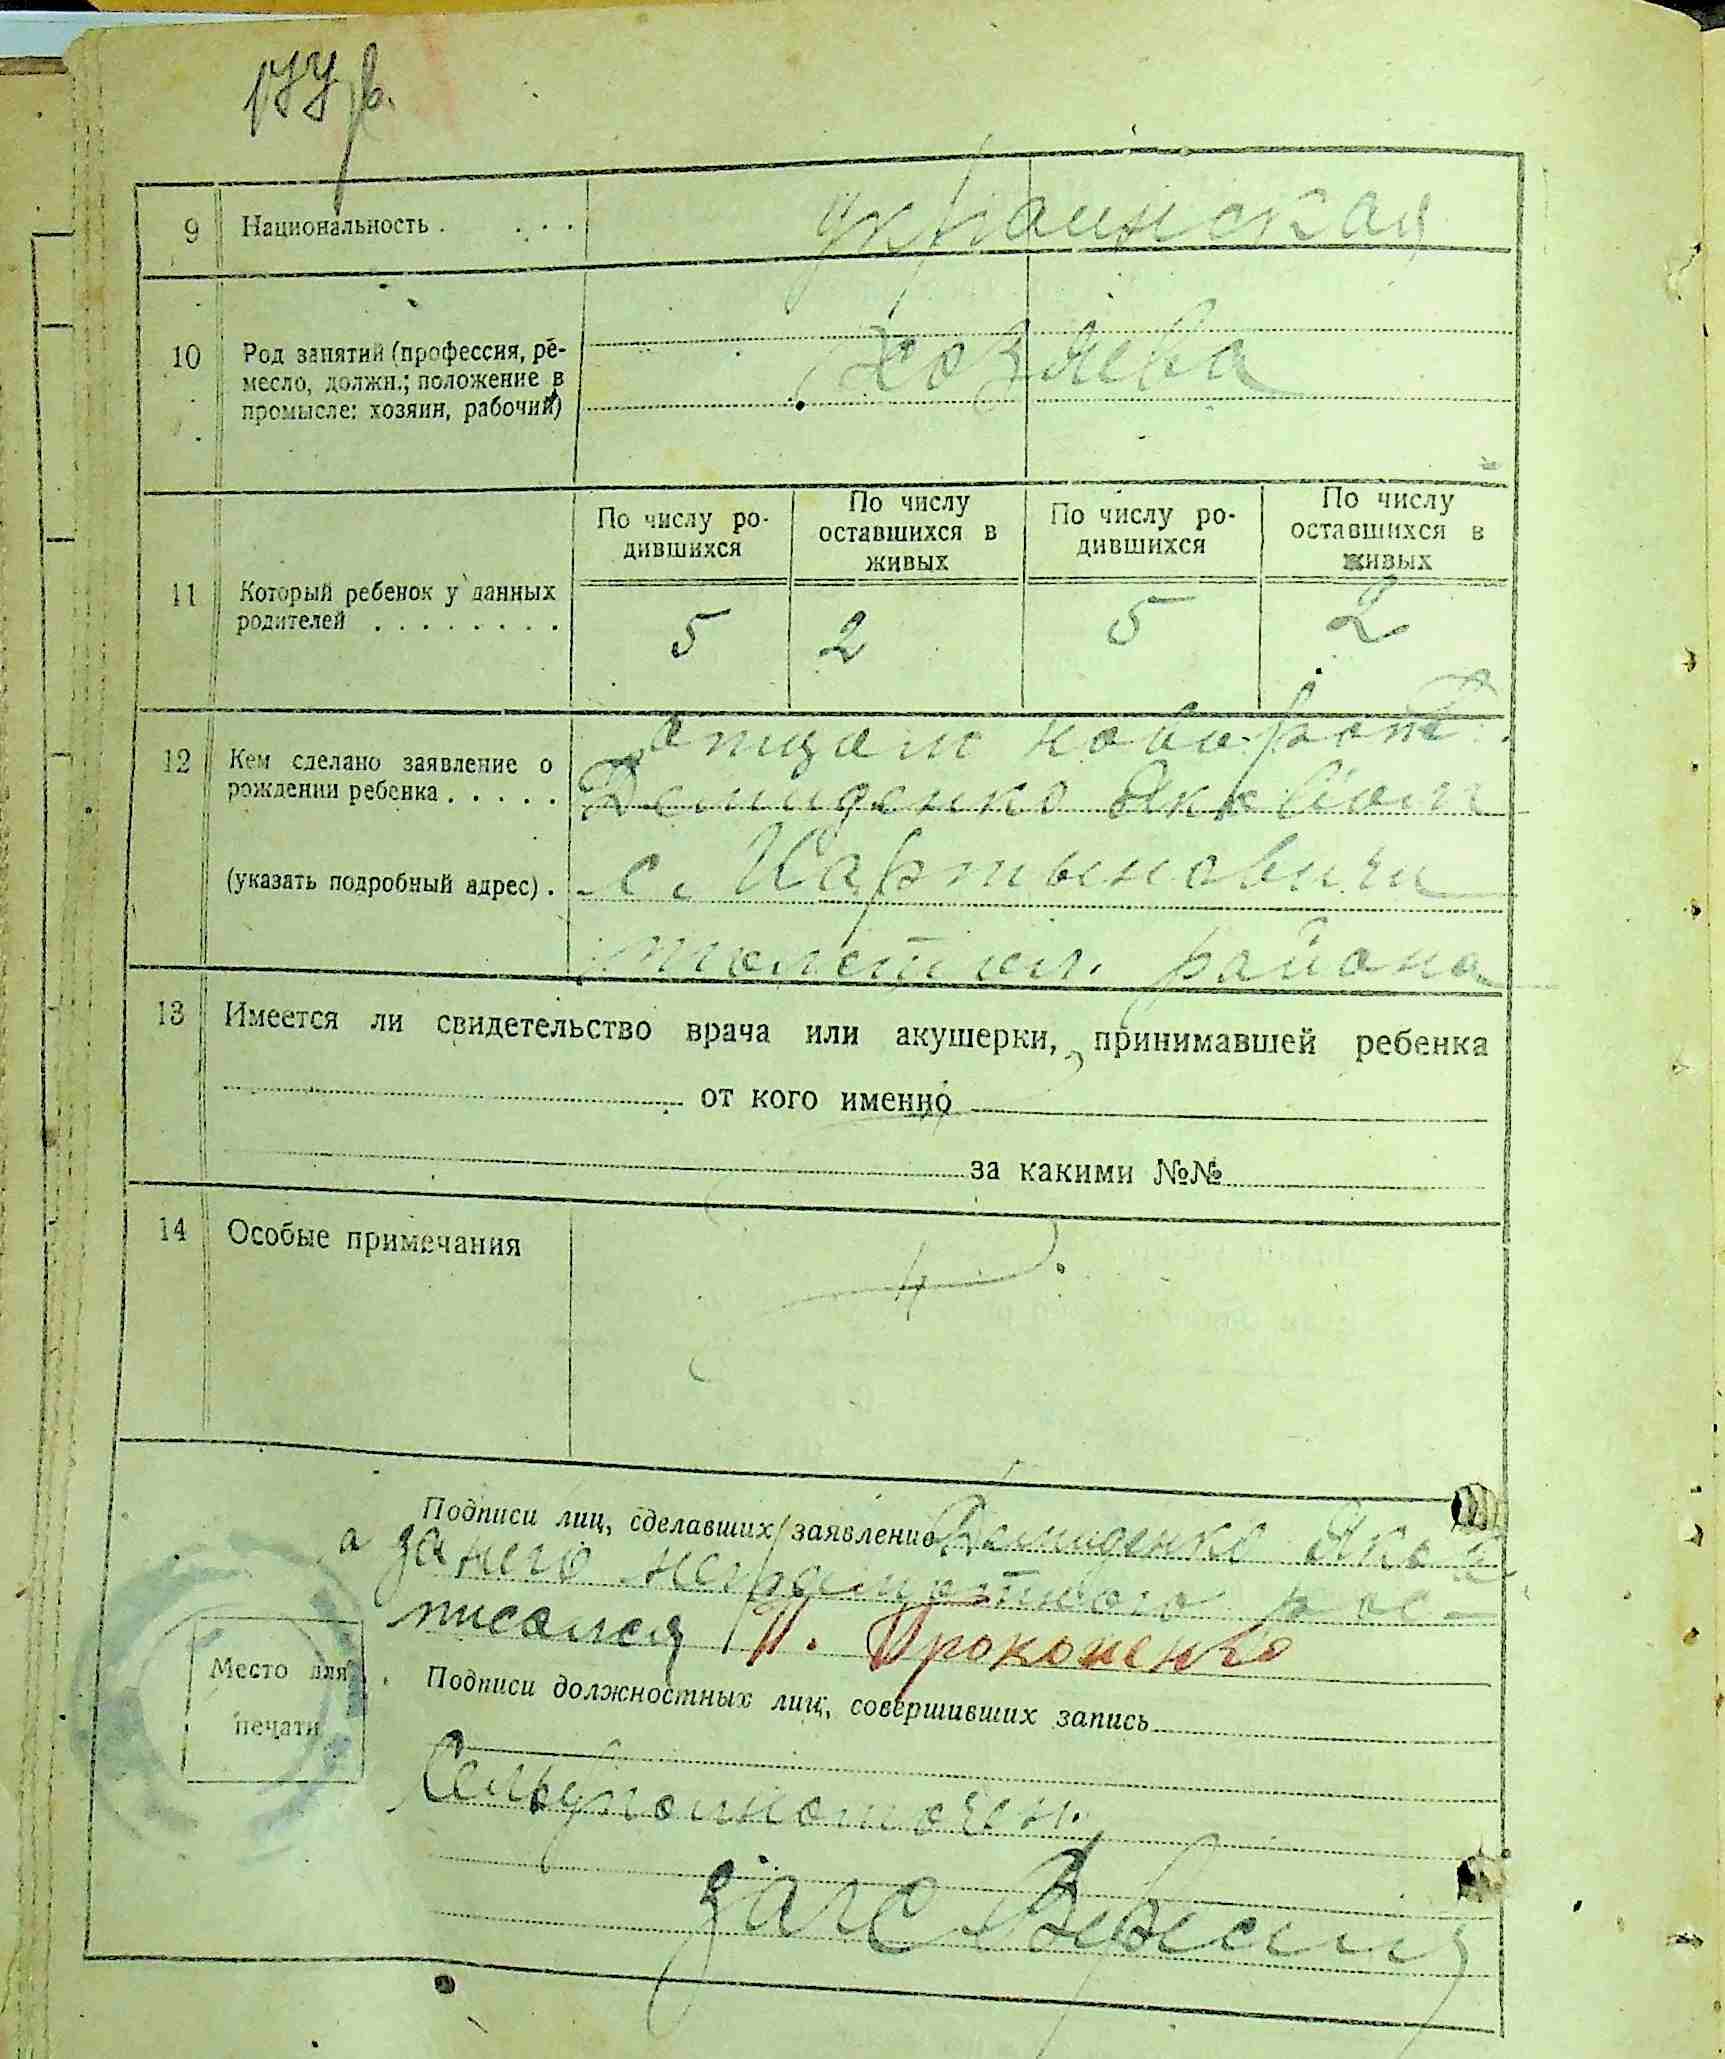 9 Национальность . . . . украинская
10 Род занятий (профессия, ре-
месло, должн.; положение в
промысле: хозяин, рабочий)
хозяева
По числу ро-
дившихся
По числу
оставшихся в
живых
По числу ро-
дившихся
По числу
оставшихся в
живых
11 Который ребенок у данных
родителей . . . . . . . .
5 2 5 2
отцом
12 Кем сделано заявление о
рождении ребенка . . . . .
Демиденко
(указать подробный адрес) . с. Мартыновичи
района
13 Имеется ли свидетельство врача или акушерки, принимавшей ребенка
от кого именно
за какими №№
14 Особые примечания
Подписи лиц, сделавших заявление Демиденко
а за него неграмотного рос-
писался П. Прокопенко
Место для
печати
Подписи должностных лиц, совершивших запись
загс